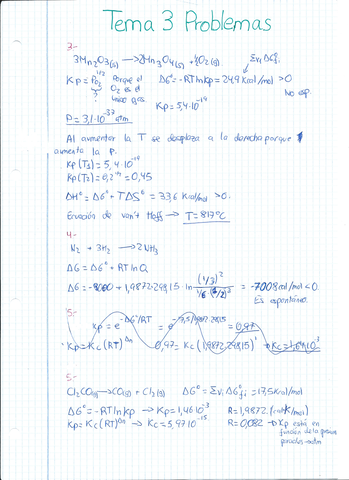 Tema 3 Problemas
3.-
3Mn₂O₃(s) → 2Mn₃O₄(s) + ½O₂(g) Σνᵢ ΔGfᵢ
Kp = Po₂^1/2 Porque el O₂ es el único gas ΔG° = -RT ln Kp = 24,9 Kcal/mol > 0
? No esp.
Kp = 5,4·10⁻¹⁹
P = 3,1·10⁻³⁷ atm
Al aumentar la T se desplaza a la derecha porque
aumenta la P.
Kp(T₁) = 5,4·10⁻¹⁹
Kp(T₂) = 0,2^1/2 = 0,45
ΔH° = ΔG° + TΔS° = 33,6 Kcal/mol > 0.
Ecuación de van't Hoff → T = 817°C
4.-
N₂ + 3H₂ → 2NH₃
ΔG = ΔG° + RT ln Q
ΔG = -8000 + 1,9872·298,15 ln (1/3)² / 1/6 (1/2)³ = -7008 cal/mol < 0
Es espontáneo.
5.-
Kp = e^-ΔG°/RT = = 0,97
Kp = Kc(RT)^Δn 0,97 = Kc(1,9872·298,15)¹ → Kc = 1,64·10⁻³
5.-
Cl₂CO(g) → CO(g) + Cl₂(g) ΔG° = Σνᵢ ΔG°fᵢ = 17,5 Kcal/mol
ΔG° = -RT ln Kp → Kp = 1,46·10⁻¹³ R = 1,9872 (cal/K/mol)
Kp = Kc(RT)^Δn → Kc = 5,97·10⁻¹⁵ R = 0,082 → Kp está en
función de la presión
parciales → atm